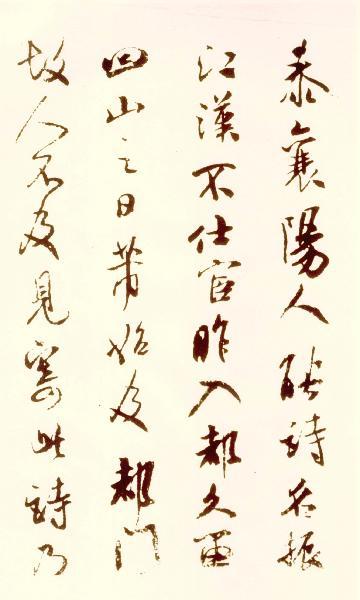 泰襄陽人能詩名振
江漢不仕宦昨入都久留
囬山之日苐始及都門
故人不及見寄此詩乃